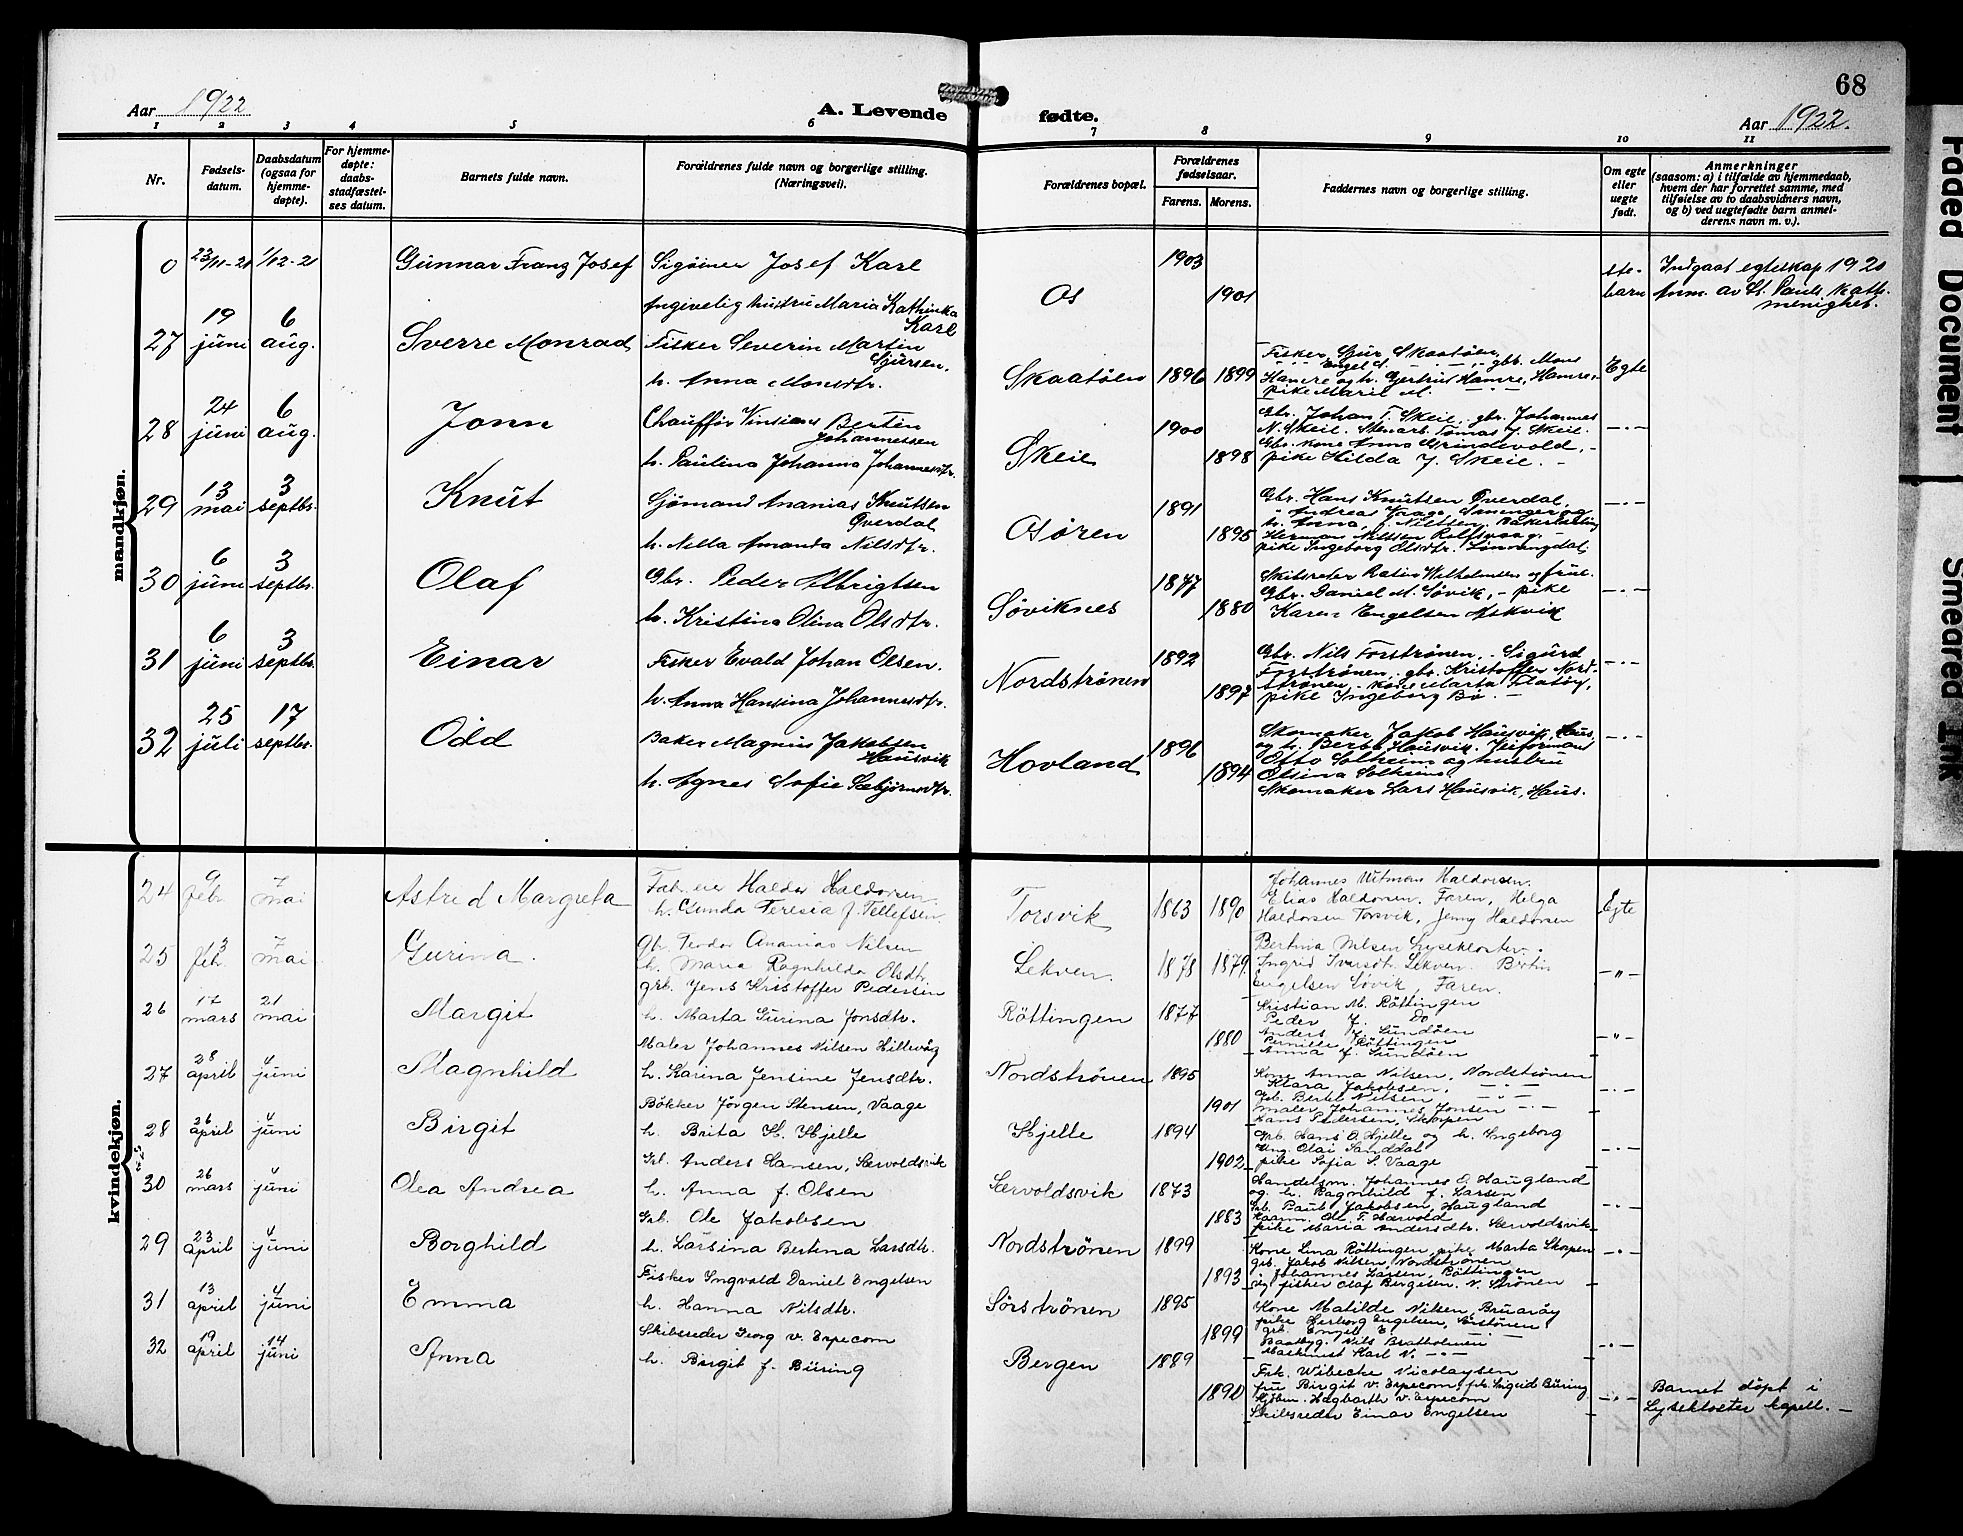 68
Aar 1922
A. Levende fødte.
Aar 1922.
1 2 3 4 5 6 7 8 9 10 11
Nr.
Fødsels-datum.
Daabsdatum (ogsaa for hjemme-døpte).
For hjemme-døpte: daabs-stadfæstel-ses datum.
Barnets fulde navn.
Forældrenes fulde navn og borgerlige stilling. (Næringsvei).
Forældrenes bopæl.
Forældrenes fødselsaar.
Farens. Morens.
Faddernes navn og borgerlige stilling.
Om egte eller uegte født.
Anmerkninger
(saasom: a) i tilfælde av hjemmedaab, hvem der har forrettet samme, med tilføielse av to daabsvidners navn, og b) ved uegtefødte barn anmel-derens navn m. v.).
mandkjøn.
0 23/11-21 1/12-21 Gunnar Franz Josef Sigöiner Josef Karl 1903
Angivelig hustru Maria Kathinka Karl Os 1901
Indgaat egteskap 1920
Anm. av St. Pauls kath. menighet.
27 19 juni 6 aug. Sverre Monrad Fisker Severin Martin Sjursen,
h. Anna Monsdtr. Skaatöen 1896 1899
Fisker Sjur Skaatöen
gbr. Mons
Hamre og h. Gertrud Hamre, Hamre,
pike Marie M. Egte
28 24 juni 6 aug. Jonn Chaufför Berten Johannessen
h. Paulina Johanna Johannesdtr. Skeie 1900 1898
Gbr. Johan T. Skeie, gbr. Johannes
N. Skeie. Stenarb. Tomas J. Skeie.
Gbr. kone Anna Grindevold,
pike Hilda J. Skeie. -
29 13 mai 3 septbr. Knut Sjömand Ananias Knutsen Överdal
h. Nilla Amanda Nilsdtr. Osören 1891 1895
Gbr. Hans Knutsen Överdal,
Andreas Vaage, og
h. Anna, f. Nilssen.
Herman Nilssen
pike Ingeborg Olsdtr.
30 6 juni 3 septbr. Olaf Gbr. Peder Albrigtsen
h. Kristina Olina Olsdtr. Söviknes 1877 1880
Skibsreder Wilhelmsen og frue.
Gbr. Daniel M. Søvik, - pike
Karen Engelsen Askvik
31 6 juni 3 septbr. Einar Fisker Evald Johan Olsen.
h. Anna Hansina Johannesdtr. Nordströnen 1892 1897
Gbr. Nils Forströnen, Sigurd
Forströnen, gbr. Kristoffer Nord-
strönen - kone Marta Flatöy,
pike Ingeborg Bö. -
32 25 juli 17 septbr. Odd Baker Magnus Jakobsen Hausvik
h. Agnes Sofie Sæbjørnsdtr. Hovland 1896 1894
Skomaker Jakob Hausvik, Haus,
og h. Berta Hausvik.
Otto Solheim og hustru
Elsina Solheim
Skomaker Lars Hausvik, Haus.
kvindekjøn.
24 9 febr. 7 mai Astrid Margreta Fab. eier Haldor Haldorsen
h. Gunda Teresia f. Tellefsen. Torsvik 1863 1890
Johannes Witman Haldorsen.
Elias Haldorsen. Faren, Helga
Haldorsen Torsvik, Jenny Haldorsen Egte
25 3 feb. 7 mai Gurina. Gbr. Teodor Ananias Nilsen
h. Maria Ragnhilda Olsdtr. Lekven. 1878 1879.
Bertina Nilsen Lysekloster.
Ingrid Ivarsdtr. Lekven. Bertin
Engelsen Søvik, Faren.
26 17 mars 21 mai Margit grb. Jens Kristoffer Pedersen
h. Marta Gurina Jonsdtr. Röttingen 1877 1880
Kristian M. Röttingen
Peder J. Do
Anders J. Sundöen
Pernille Röttingen
Anna f. Sundöen
27 28 april 4 juni Magnhild Maler Johannes Nilsen Hillevåg
h. Karina Jensine Jensdtr. Nordströnen 1895 1901
Kone Anna Nilsen, Nordströnen
Klara Jakobsen,
Gb. Bertel Nilsen
maler Johannes Jonsen
Hans Pedersen, Skorpen
28 26 april 4 juni Birgit Bökker Jörgen Stensen, Vaage
h. Brita H. Hjelle Hjelle 1894 1902
Grb. Hans O. Hjelle og h. Ingeborg
Ung. Olai Sanddal
pike Sofia S. Vaage
30 26 mars 4 juni Olea Andrea Grb. Anders Hansen, Særvoldsvik
h. Anna f. Olsen Særvoldsvik 1873 1883
Handelsm. Johannes O. Haugland
og h. Ragnhild f. Larsen
Grb. Paul Jakobsen, Haugland
pike Maria Andersdtr. Særvoldsvik
29 23 april 4 juni Borghild Grb. Ole Jakobsen
h. Larsina Bertina Larsdtr. Nordströnen 1899 1893
Kone Lina Röttingen, pike Marta Skorpen
grb. Jakob Nilsen, Nordströnen
Johannes Larsen, Röttingen
fisker Olaf Bergesen. N. Strönen
31 13 april 4 juni Emma Fisker Ingvald Daniel Engelsen
h. Hanna Nilsdtr. Sörströnen 1895 1899
Kone Matilde Nilsen, Bruaröy
pike Herborg Engelsen, Sörströnen
grb. Engel E.
Baatbyg. Nils Bratholmen
Maskinist Karl N.
32 19 april 14 juni Anna Skibsreder Georg v. Erpecom
h. Birgit f. Büring Bergen 1889 1890
Frk. Wibecke Nicolaysen
fru Birgit v. Erpecom, frk. Sigrid Büring
Kjöbm. Hagbarth v. Erpecom
Skibsreder Einar Engelsen
Barnet döpt i
Lysekloster kapell. -
Faded Document
Smeared Ink